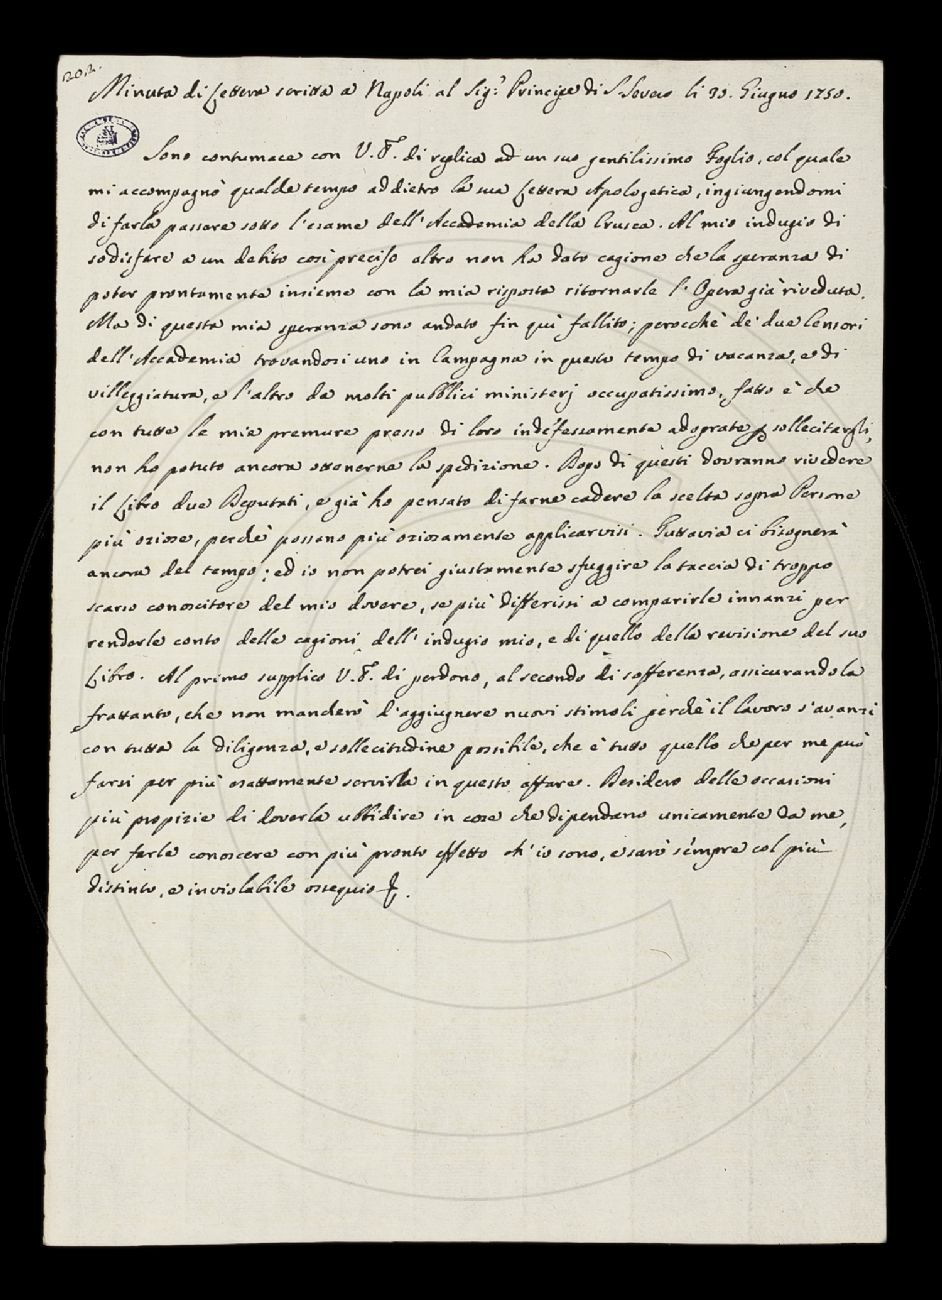 202.
Minuta di Lettera scritta a Napoli al Sig.r Principe di S. Severo li 30. Giugno 1750.
Sono contumace con V. E. di replica ad un suo gentilissimo Foglio, col quale
mi accompagnò qualche tempo addietro la sua Lettera Apologetica, ingiungendomi
di farla passare sotto l'esame dell'Accademia della Crusca. Al mio indugio di
sodisfare a un debito così preciso altro non ha dato cagione che la speranza di
poter prontamente insieme con la mia risposta ritornarle l'Opera già riveduta.
Ma di questa mia speranza sono andato fin quì fallito; perocchè de' due Censori
dell'Accademia trovandosi uno in Campagna in questo tempo di vacanza, e di
villeggiatura, e l'altro da molti pubblici ministerj occupatissimo, fatto è che
con tutte le mie premure presso di loro indefessamente adoprate p sollecitargli,
non ho potuto ancora ottenerne la spedizione. Dopo di questi dovranno rivedere
il Libro due Deputati, e già ho pensato di farne cadere la scelta sopra Persone
più oziose, perchè possano più oziosamente applicarvisi. Tuttavia ci bisognerà
ancora del tempo; ed io non potrei giustamente sfuggire la taccia di troppo
scarso conoscitore del mio dovere, se più differissi a comparirle innanzi per
renderle conto delle cagioni dell'indugio mio, e di quello della revisione del suo
Libro. Al primo supplico V. E. di perdono, al secondo di sofferenza, assicurandola
frattanto, che non mancherò d'aggiugnere nuovi stimoli perchè il lavoro s'avanzi
con tutta la diligenza, e sollecitudine possibile, che è tutto quello che per me può
farsi per più esattamente servirla in questo affare. Desidero delle occasioni
più propizie di doverla ubbidire in cose che dipendano unicamente da me,
per farle conoscere con più pronto effetto ch'io sono, e sarò sempre col più
distinto, e inviolabile ossequio